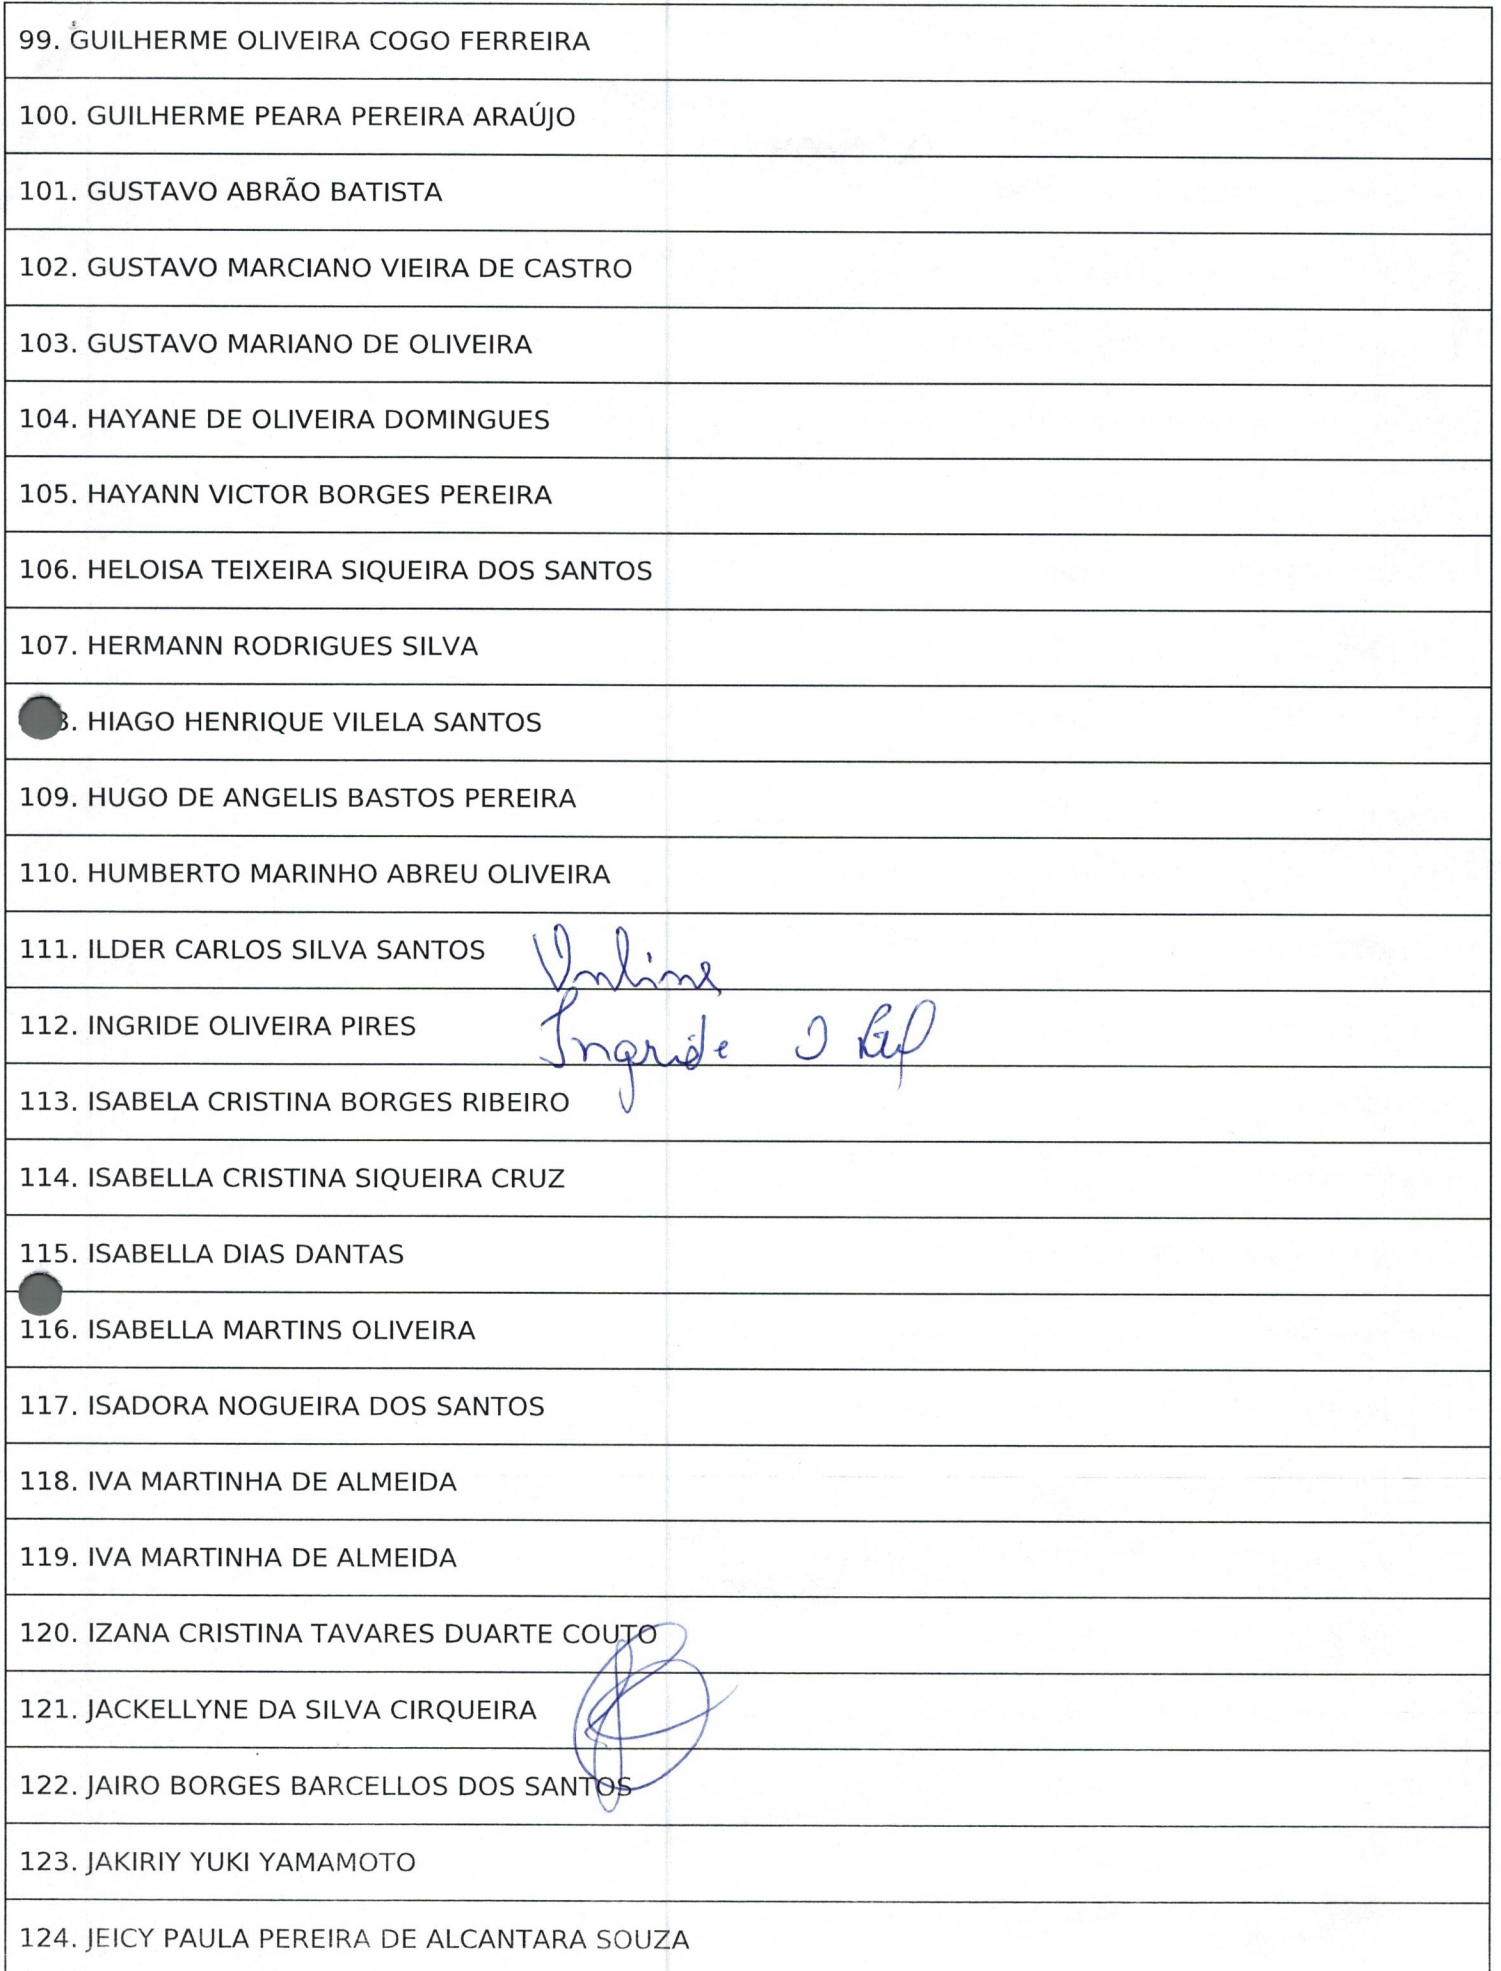 99. GUILHERME OLIVEIRA COGO FERREIRA
100. GUILHERME PEARA PEREIRA ARAÚJO
101. GUSTAVO ABRÃO BATISTA
102. GUSTAVO MARCIANO VIEIRA DE CASTRO
103. GUSTAVO MARIANO DE OLIVEIRA
104. HAYANE DE OLIVEIRA DOMINGUES
105. HAYANN VICTOR BORGES PEREIRA
106. HELOISA TEIXEIRA SIQUEIRA DOS SANTOS
107. HERMANN RODRIGUES SILVA
8. HIAGO HENRIQUE VILELA SANTOS
109. HUGO DE ANGELIS BASTOS PEREIRA
110. HUMBERTO MARINHO ABREU OLIVEIRA
111. ILDER CARLOS SILVA SANTOS Online
112. INGRIDE OLIVEIRA PIRES Ingride O
113. ISABELA CRISTINA BORGES RIBEIRO
114. ISABELLA CRISTINA SIQUEIRA CRUZ
115. ISABELLA DIAS DANTAS
116. ISABELLA MARTINS OLIVEIRA
117. ISADORA NOGUEIRA DOS SANTOS
118. IVA MARTINHA DE ALMEIDA
119. IVA MARTINHA DE ALMEIDA
120. IZANA CRISTINA TAVARES DUARTE COUTO
121. JACKELLYNE DA SILVA CIRQUEIRA
122. JAIRO BORGES BARCELLOS DOS SANTOS
123. JAKIRIY YUKI YAMAMOTO
124. JEICY PAULA PEREIRA DE ALCANTARA SOUZA